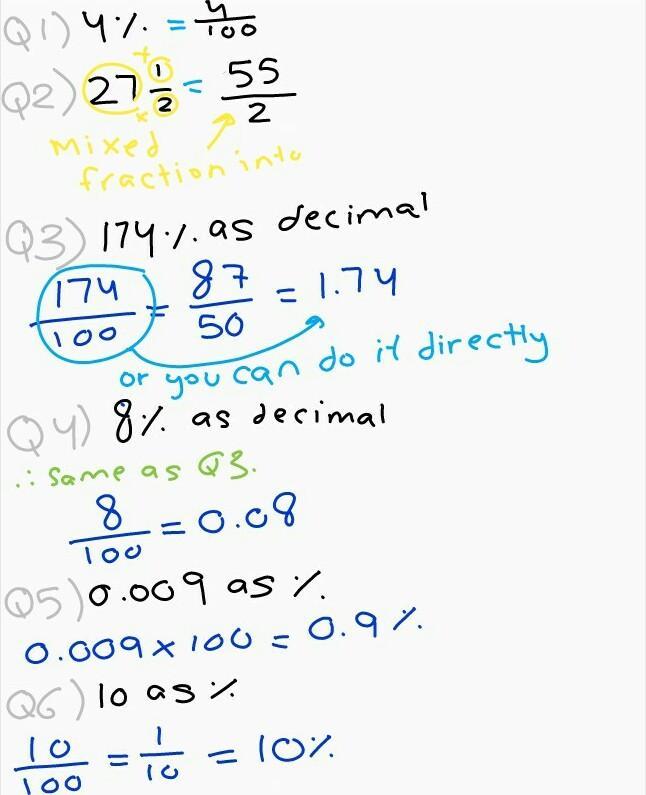 Q1) 4% = 4/100
Q2) 27 1/2 = 55/2
+
x
Mixed
fraction into
Q3) 174% as decimal
174/100 = 87/50 = 1.74
or you can do it directly
Q4) 8% as decimal
∴ Same as Q3.
8/100 = 0.08
Q5) 0.009 as %
0.009 x 100 = 0.9%
Q6) 10 as %
10/100 = 1/10 = 10%